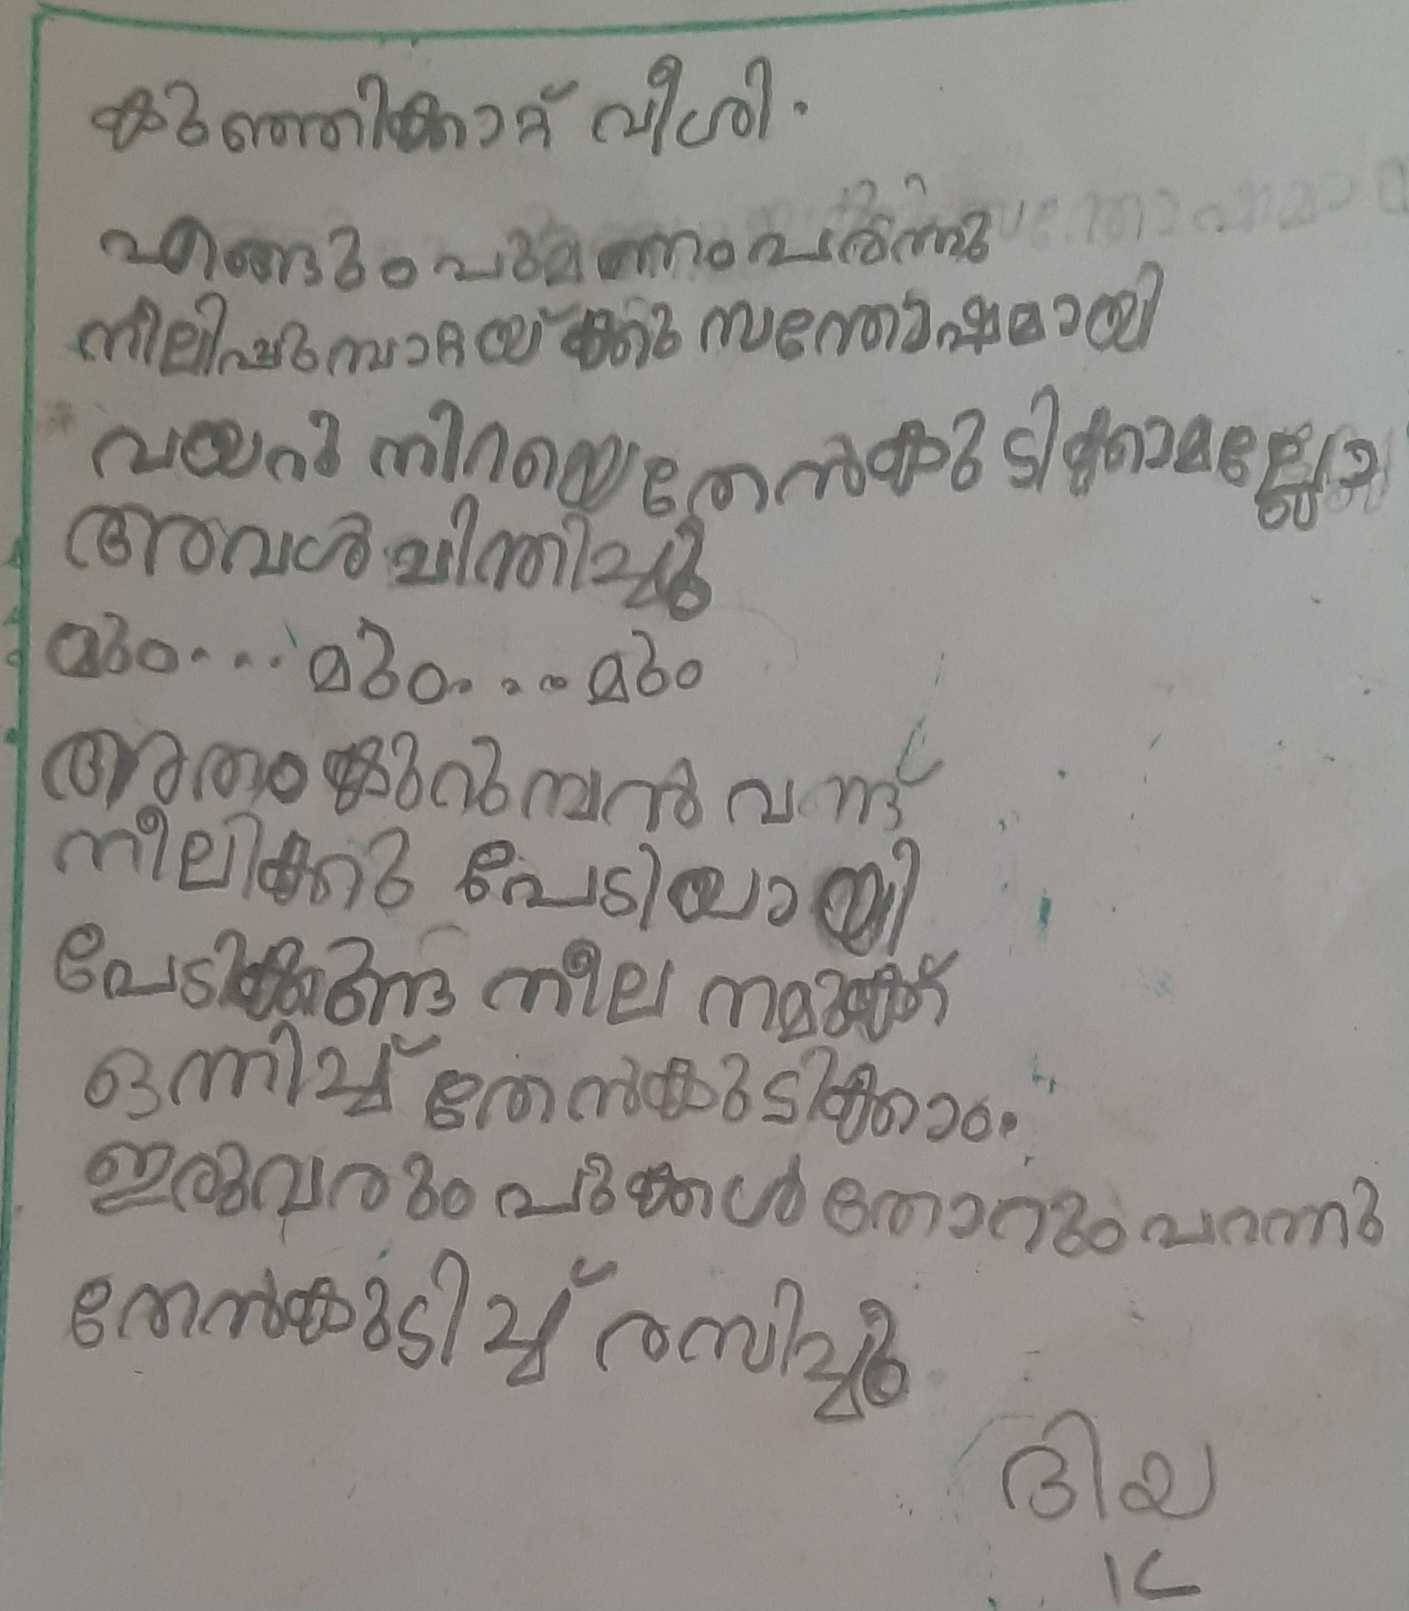 കുഞ്ഞികാറ്റ് വീശി.
എങ്ങും പൂമണം പരന്നു
നീലിപൂമ്പാറ്റയ്ക്കു സന്തോഷമായി
വയറു നിറയെ തേൻകുടിക്കാമല്ലോ
അവൾ ചിന്തിച്ചു
മൂം.... മൂം.... മൂം
ആരാ കുറുമ്പൻ വണ്ട്
നീലിക്കു പേടിയായി
പേടിക്കണ്ട നീല നമുക്ക്
ഒന്നിച്ച് തേൻകുടിക്കാം.
ഇരുവരും പൂക്കൾ തോറും പറന്നു
തേൻകുടിച്ച് രസിച്ചു
ദിയ
1C